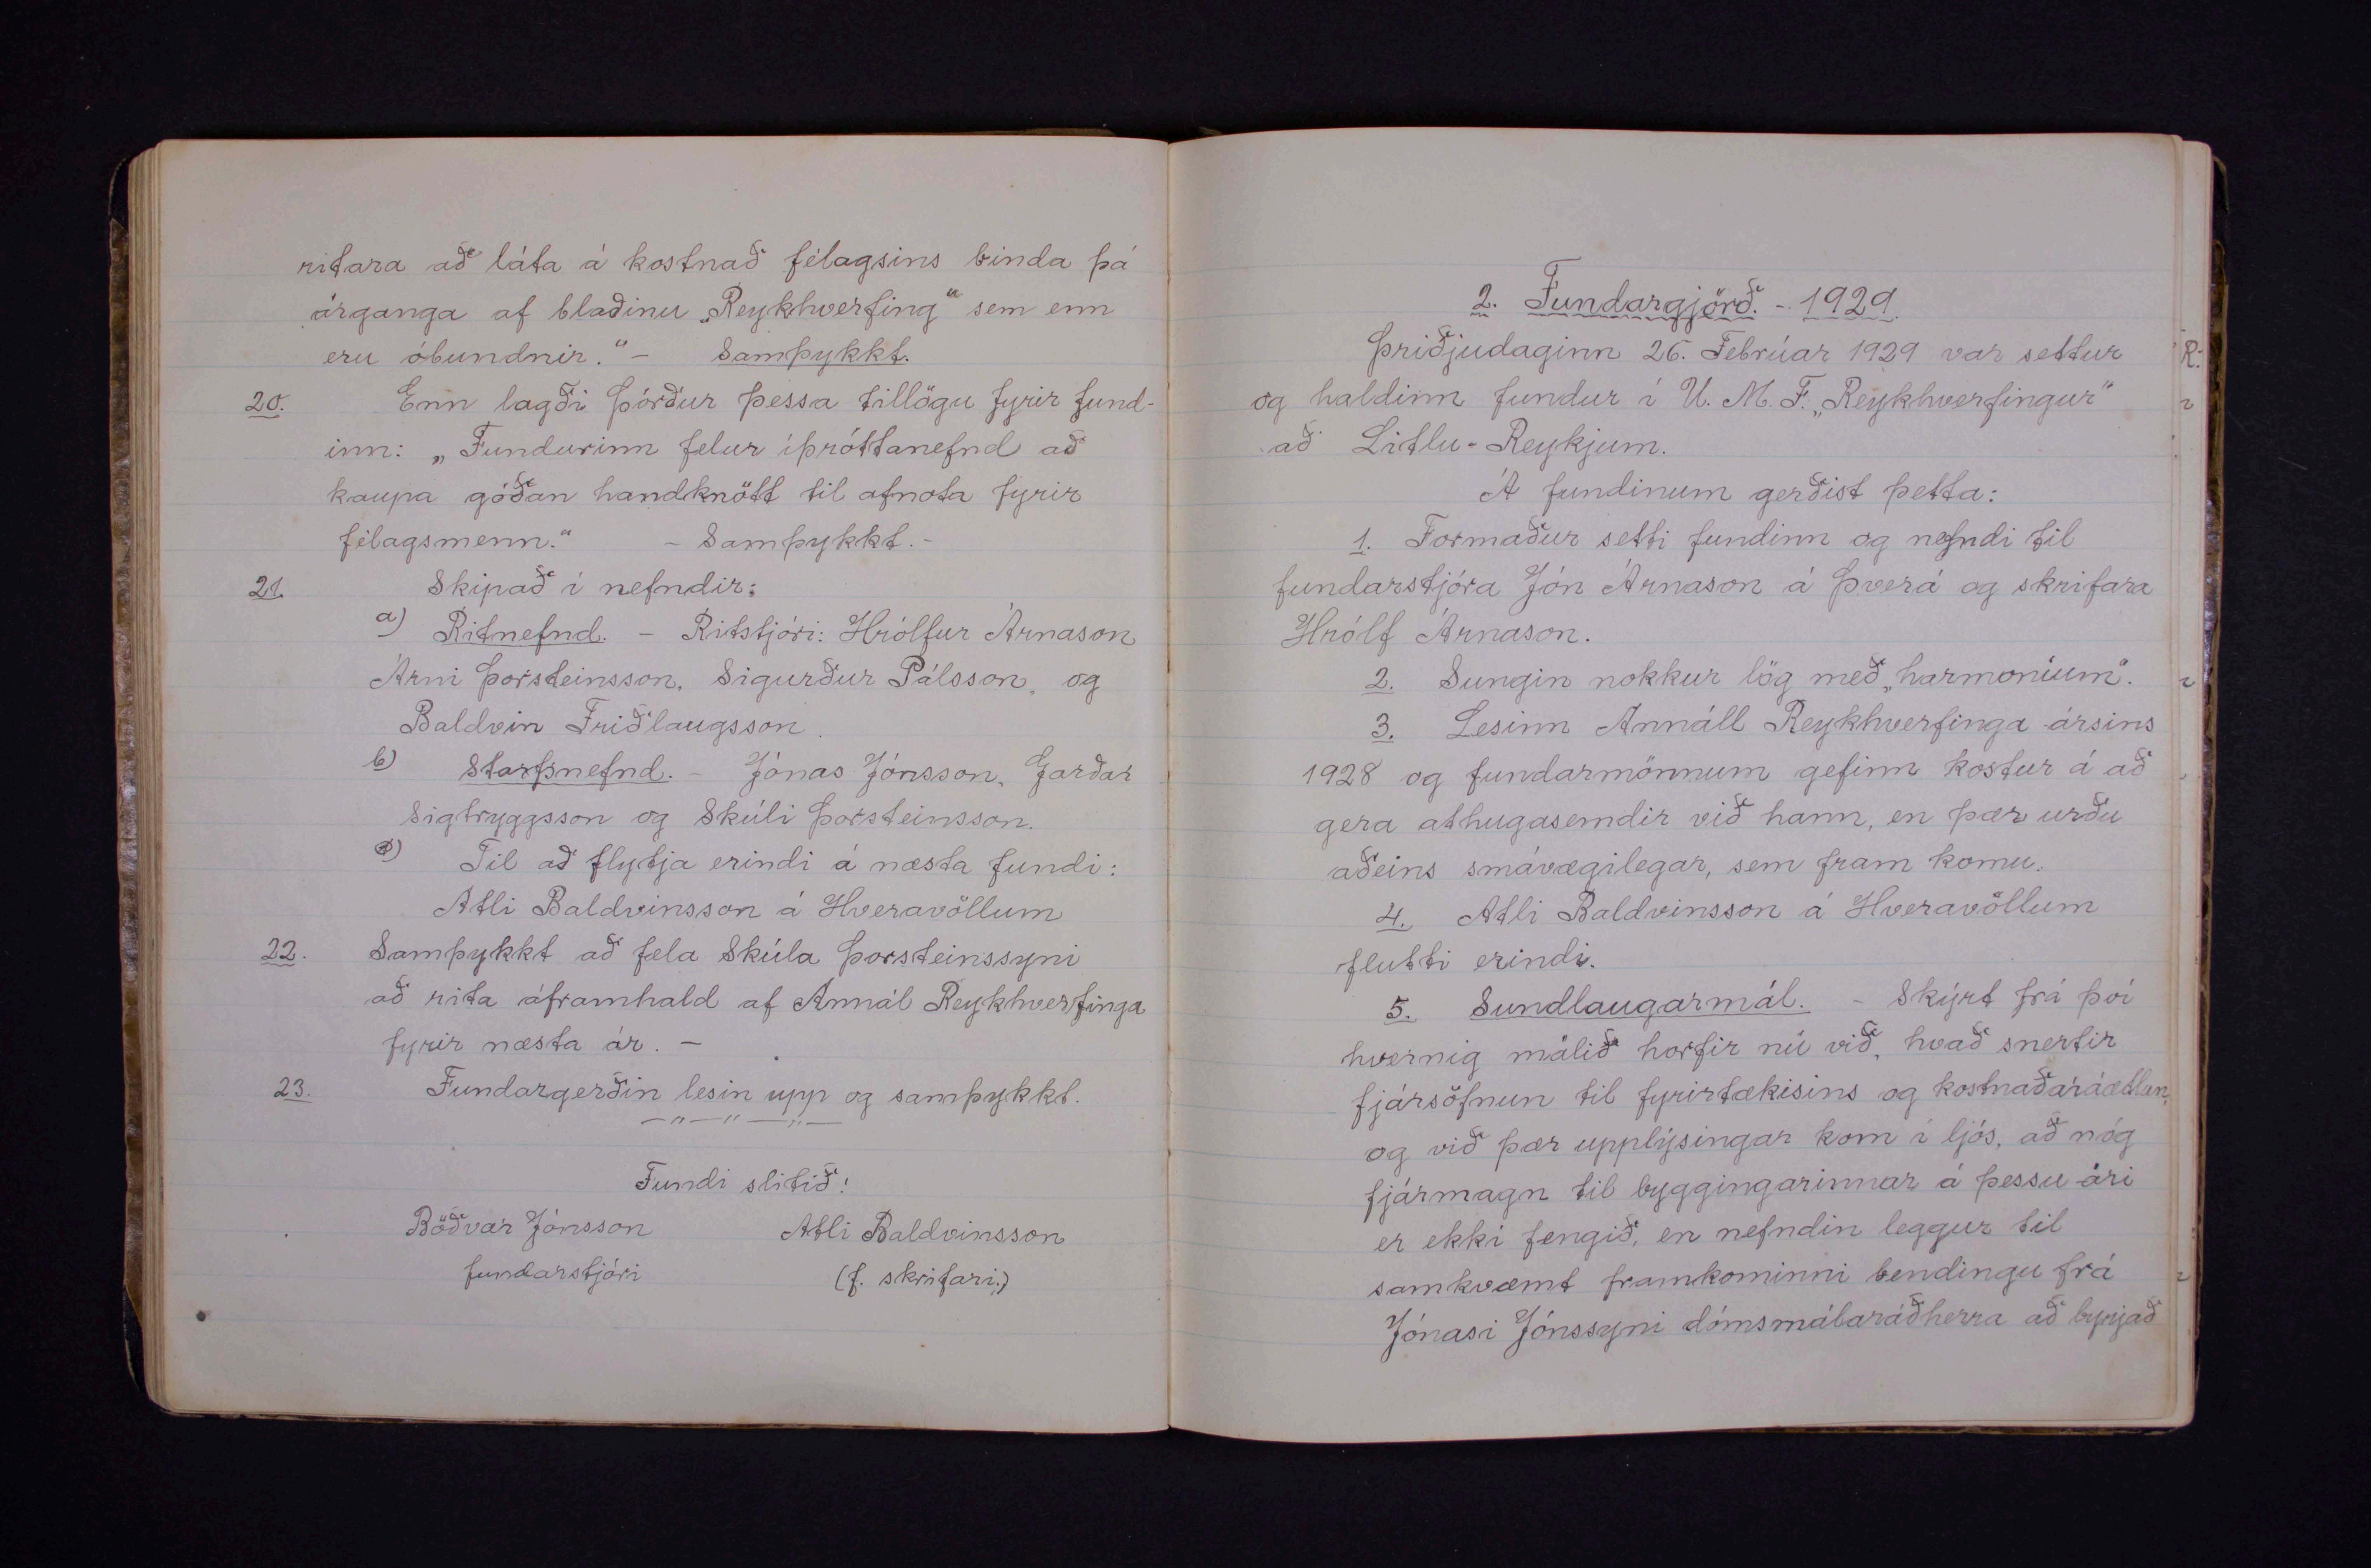 ritara að láta á kostnað félagsins binda þá
árganga af blaðinu „Reykhverfing“ sem enn
eru óbundnir.“ - Samþykkt.
20. Enn lagði Þórður þessa tillögu fyrir fund-
inn: „Fundurinn felur íþróttanefnd að
kaupa góðan handknött til afnota fyrir
félagsmenn.“ - Samþykkt. -
21. Skipað í nefndir:
a) Ritnefnd. - Ritstjóri: Hrólfur Árnason
Árni Þorsteinsson, Sigurður Pálsson, og
Baldvin Friðlaugsson.
b) Starfsnefnd. - Jónas Jónsson, Garðar
Sigtryggsson og Skúli Þorsteinsson.
c) Til að flytja erindi á næsta fundi:
Atli Baldvinsson á Hveravöllum
22. Samþykkt að fela Skúla Þorsteinssyni
að rita áframhald af Annál Reykhverfinga
fyrir næsta ár. -
23. Fundargerðin lesin upp og samþykkt.
— " — " — " —
Fundi slitið!
Böðvar Jónsson Atli Baldvinsson
fundarstjóri (f. skrifari.)
2. Fundargjörð. - 1929.
Þriðjudaginn 26. Febrúar 1929 var settur
og haldinn fundur í U. M. F. „Reykhverfingur“
að Litlu-Reykjum.
Á fundinum gerðist þetta:
1. Formaður setti fundinn og nefndi til
fundarstjóra Jón Árnason á Þverá og skrifara
Hrólf Árnason.
2. Sungin nokkur lög með „harmonium“.
3. Lesinn Annáll Reykhverfinga ársins
1928 og fundarmönnum gefinn kostur á að
gera athugasemdir við hann, en þær urðu
aðeins smávægilegar, sem fram komu.
4. Atli Baldvinsson á Hveravöllum
flutti erindi.
5. Sundlaugarmál. - Skýrt frá því
hvernig málið horfir nú við, hvað snertir
fjársöfnun til fyrirtækisins og kostnaðaráætlun,
og við þær upplýsingar kom í ljós, að nóg
fjármagn til byggingarinnar á þessu ári
er ekki fengið, en nefndin leggur til
samkvæmt framkominni bendingu frá
Jónasi Jónssyni dómsmálaráðherra að byrjað